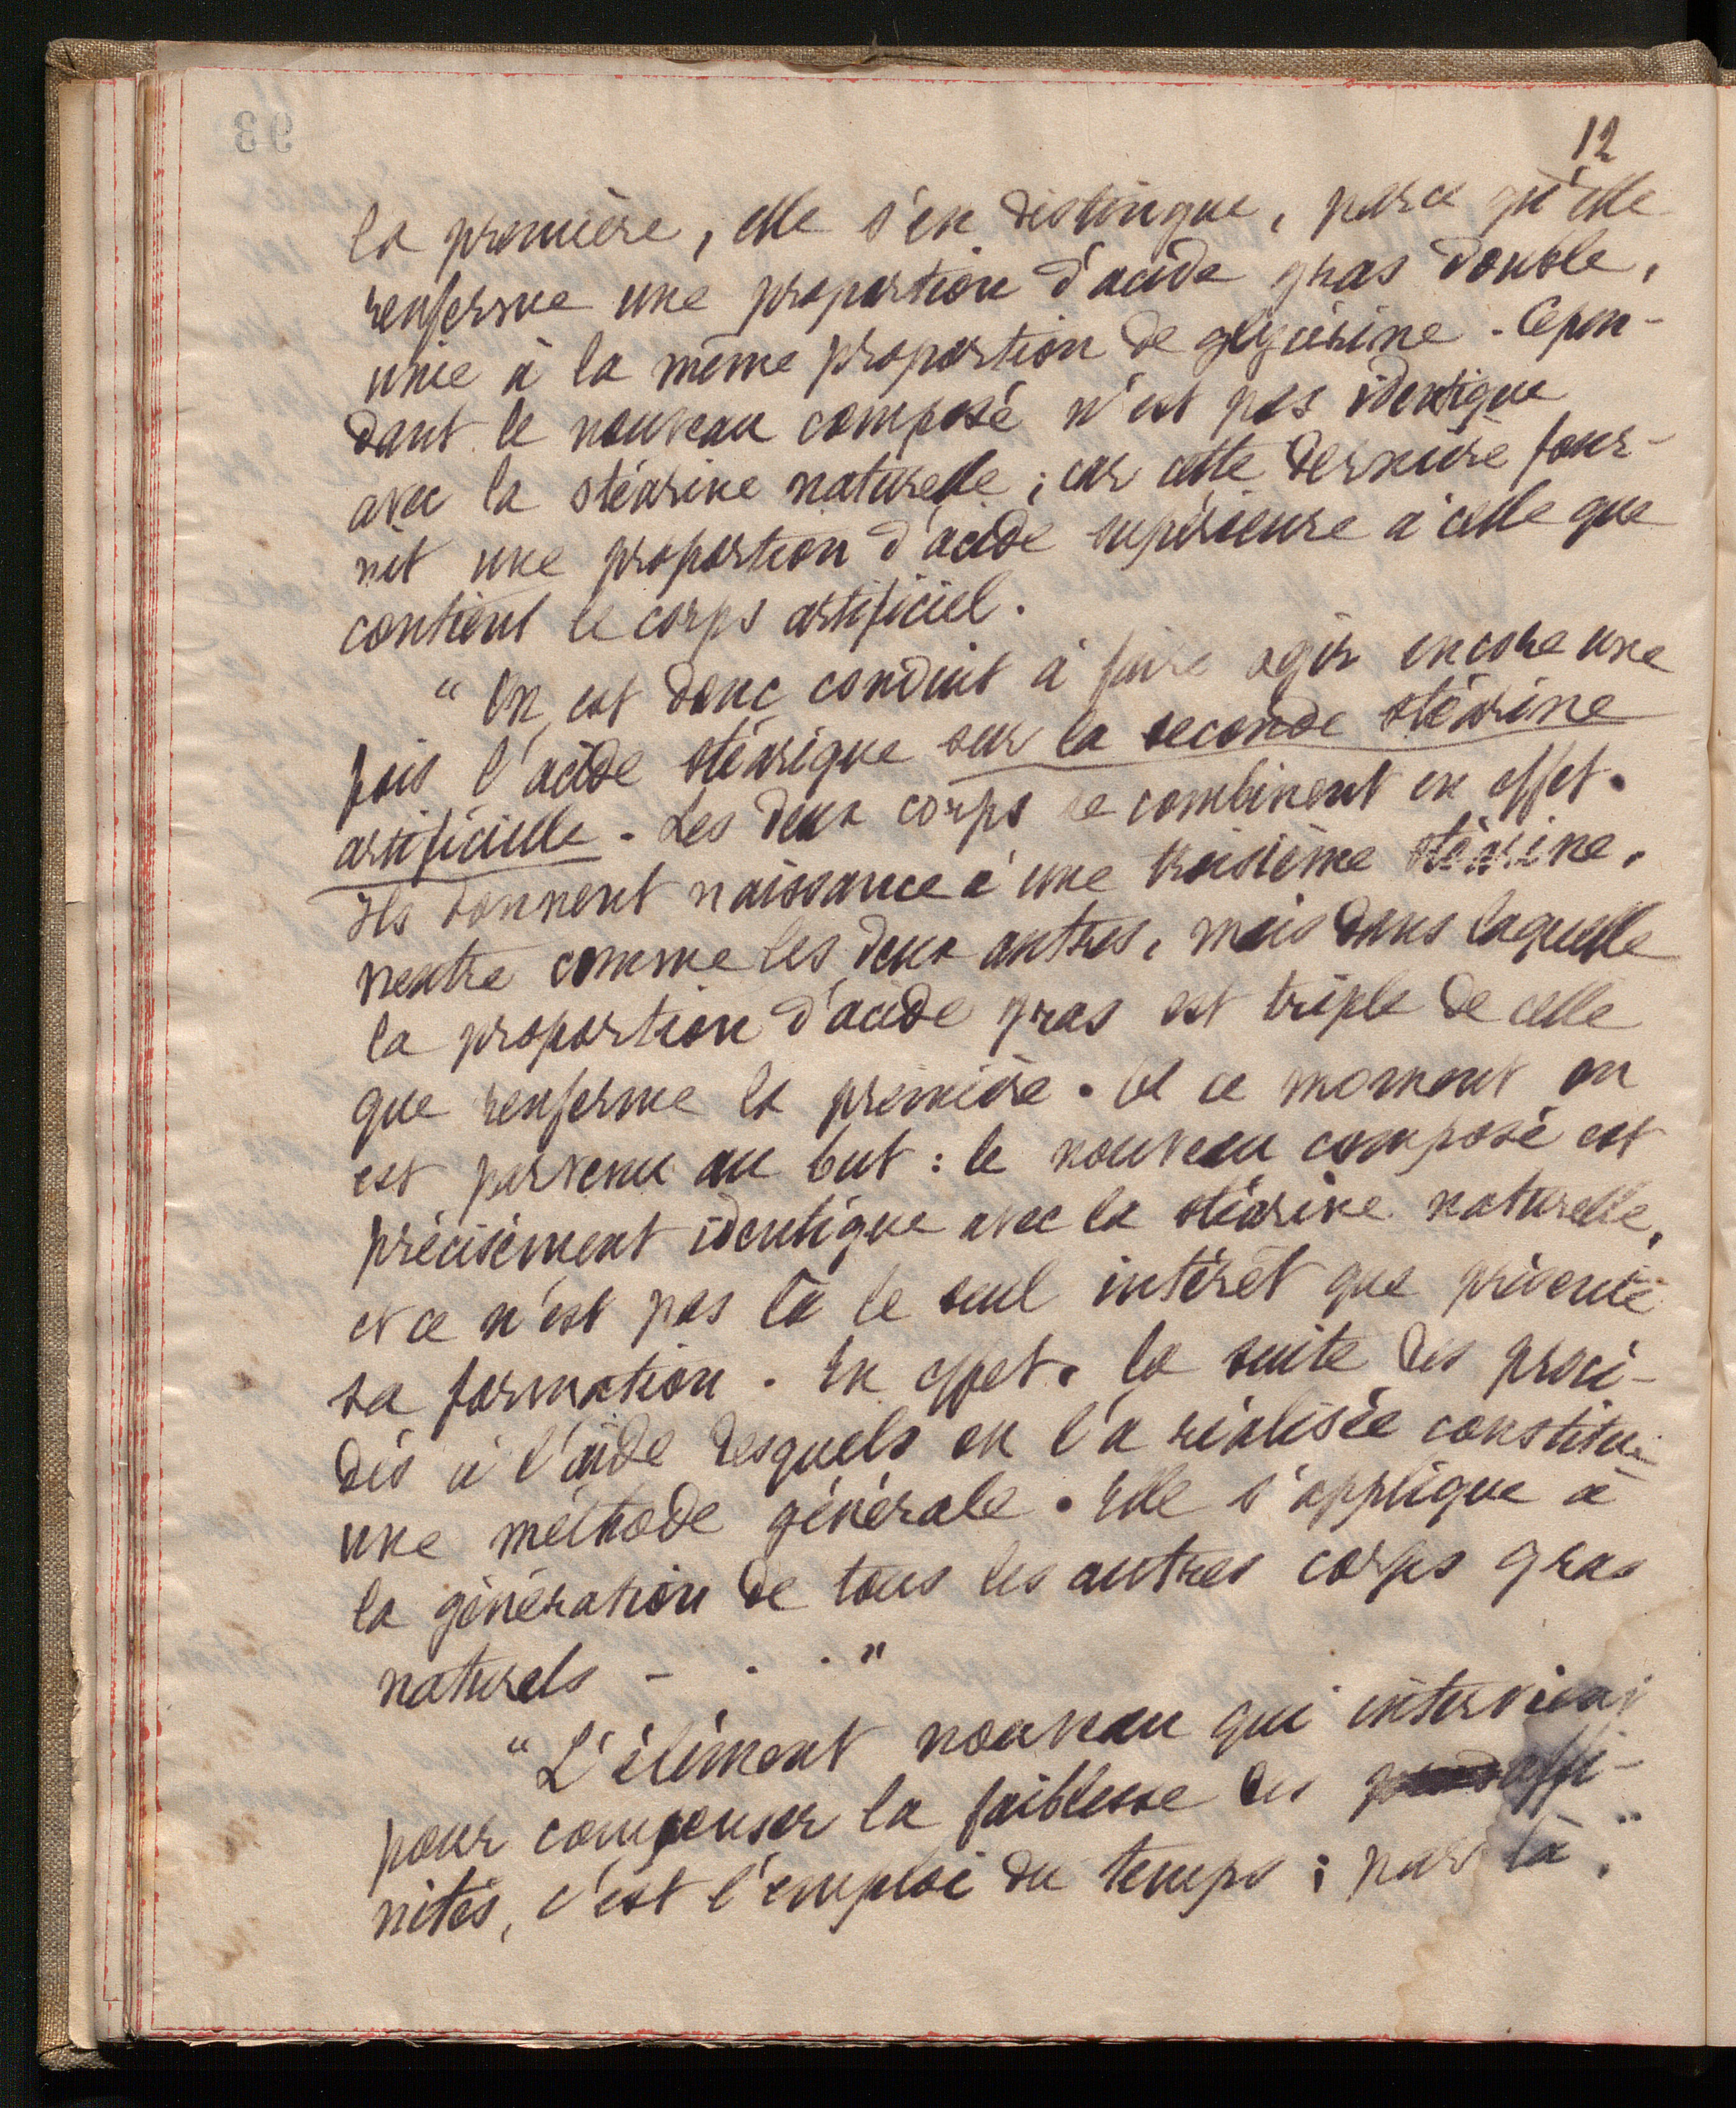 12
la première, elle s'en distingue, parce qu'elle
renferme une proportion d'acide gras double,
unie à la même proportion de glycérine. Cepen-
dant le nouveau composé n'est pas identique
avec la stéarine naturelle; car cette dernière four-
nit une proportion d'acide supérieure à celle que
contient le corps artificiel.
"On est donc conduit à faire agir encore une
fois l'acide stéarique sur la seconde stéarine
artificielle. Les deux corps se combinent en effet.
Ils donnent naissance à une troisième stéarine,
neutre comme les deux autres, mais dans laquelle
la proportion d'acide gras est triple de celle
que renferme la première. A ce moment on
est parvenu au but: le nouveau composé est
précisément identique avec la stéarine naturelle,
et ce n'est pas là le seul intérêt que présente
sa formation. En effet, la suite des procé-
dés à l'aide desquels on l'a réalisée constitue
une méthode générale. Elle s'applique à
la génération de tous les autres corps gras
naturels - . . "
"L'élément nouveau qui intervient
pour compenser la faiblesse des affi-
nités, c'est l'emploi du temps; par là."
93